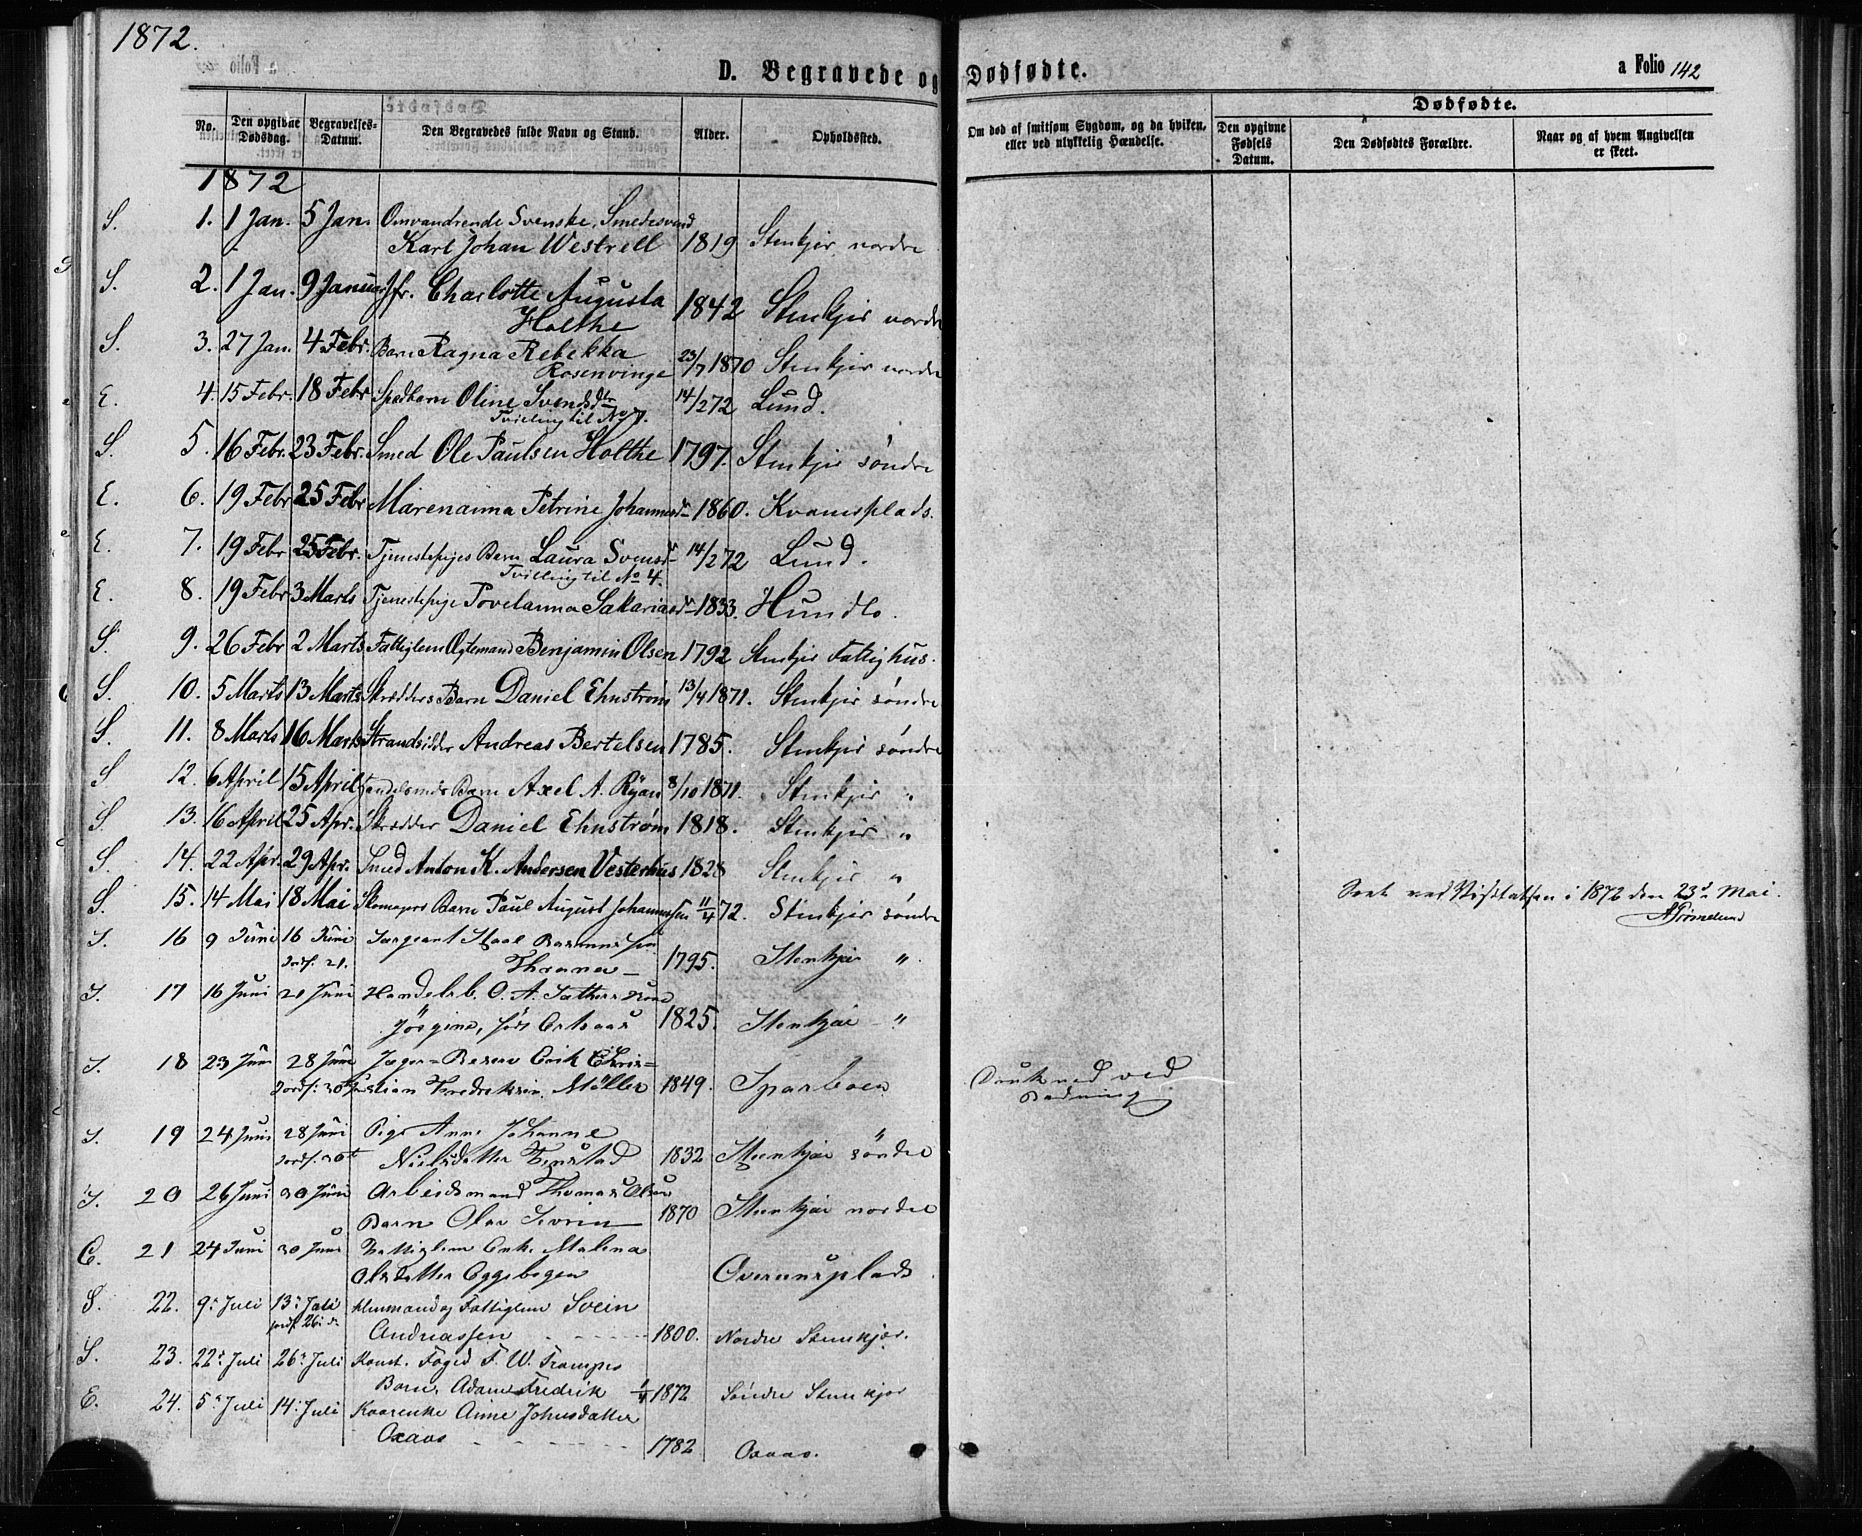 1872.
D. Begravede og Dødfødte.
a Folio 142
No.
Den opgivne Dødsdag.
Begravelses-Datum.
Den Begravedes fulde Navn og Stand.
Alder.
Opholdssted.
Om død af smitsom Sygdom, og da hviken, eller ved ulykkelig Hændelse.
Dødfødte.
Den opgivne Fødsels Datum.
Den Dødfødtes Forældre.
Naar og af hvem Angivelsen er skeet.
1872
S. 1. 1 Jan. 5 Jan. Omvandrende Svenske, Smedesvend
Karl Johan Westrell 1819 Stenkjer nordre
S. 2. 1 Jan. 9 Januar Jfr. Charlotte Augusta
Holthe 1842 Stenkjer nordre
S. 3. 27 Jan. 4 Febr. Barn Ragna Rebekka
Rosenvinge 23/7 1870 Stenkjer nordre
E. 4. 15 Febr. 18 Febr Spædbarn Oline Svendsdtr 14/2 72 Lund.
Tvilling til No 7.
S. 5. 16 Febr. 23 Febr. Smed Ole Paulsen Holthe 1797. Stenkjer søndre
E. 6. 19 Febr 25 Febr Marenanna Petrine Johannesd 1860. Kvamsplads.
E. 7. 19 Febr 25 Febr. Tjenestepiges Barn Laura Svensd 14/2 72 Lund.
Tvilling til No 4.
E. 8. 19 Febr 3 Marts Tjenestepige Povelanna Sakariasd 1833. Hundlo.
S. 9. 26 Febr 2 Marts Fattiglem Ægtemand Benjamin Olsen 1792 Stenkjer Fattighus.
S. 10. 5 Marts 13 Marts Skrædders Barn Daniel Ehnstrøm 13/4 1871. Stenkjer søndre
S. 11. 8 Marts 16 Marts Strandsidder Andreas Bertelsen 1785. Stenkjer søndre
S 12. 6 April 15 April Handelsmds Barn Axel A. Ryan 8/10 1871. Stenkjer "
S. 13. 16 April 25 Apr. Skrædder Daniel Ehnstrøm 1818. Stenkjer "
S. 14. 22 Apr. 29 Apr. Smed Anton K. Andersen Vesterhus 1828 Stenkjer "
S. 15. 14 Mai 18 Mai Skomagers Barn Paul August Johannessen 11/4 72. Stenkjer søndre
Seet ved Visitatsen i 1872 den 23d Mai.
S. 16 9 Juni 16 Juni Sergeant
Jordf. 21. 1795. Stenkjær ".
S. 17 16 Juni 21 Juni Handelsb. O. A. Sæthers Kone
Jörgine, født 1825. Stenkjær "
S. 18 23 Juni 28 Juni Jæger- Erik Chris=
Jordf: 30 tian Fredriksen Møller 1849. Sparboen Drukned ved
Badning
S. 19 24 Juni 28 Juni Pige Anne Johanne
Jordf. 30t Nielsdatter 1832 Steenkjær søndre
S. 20 26 Juni 30 Juni Arbeidsmand Thomas Olsens
Barn Olav Sevrin 1870 Steenkjær nordre
E. 21 24 Juni 30 Juni Fattiglem Enke Malena
Olsdatter Eggebogen Overumsplads
S. 22. 9. Juli 13. Juli Huusmand og Fattiglem Svein
jordf 26 Andreassen 1800. Nordre Steenkjær.
S. 23. 22. Juli 26. Juli Konst. Foged F. W. Trampes
Barn Adam Fredrik 1872 Søndre Steenkjær
E. 24. 5. Juli 14. Juli Kaarenke Anne Johnsdatter
Oxaas 1782 Oxaas.